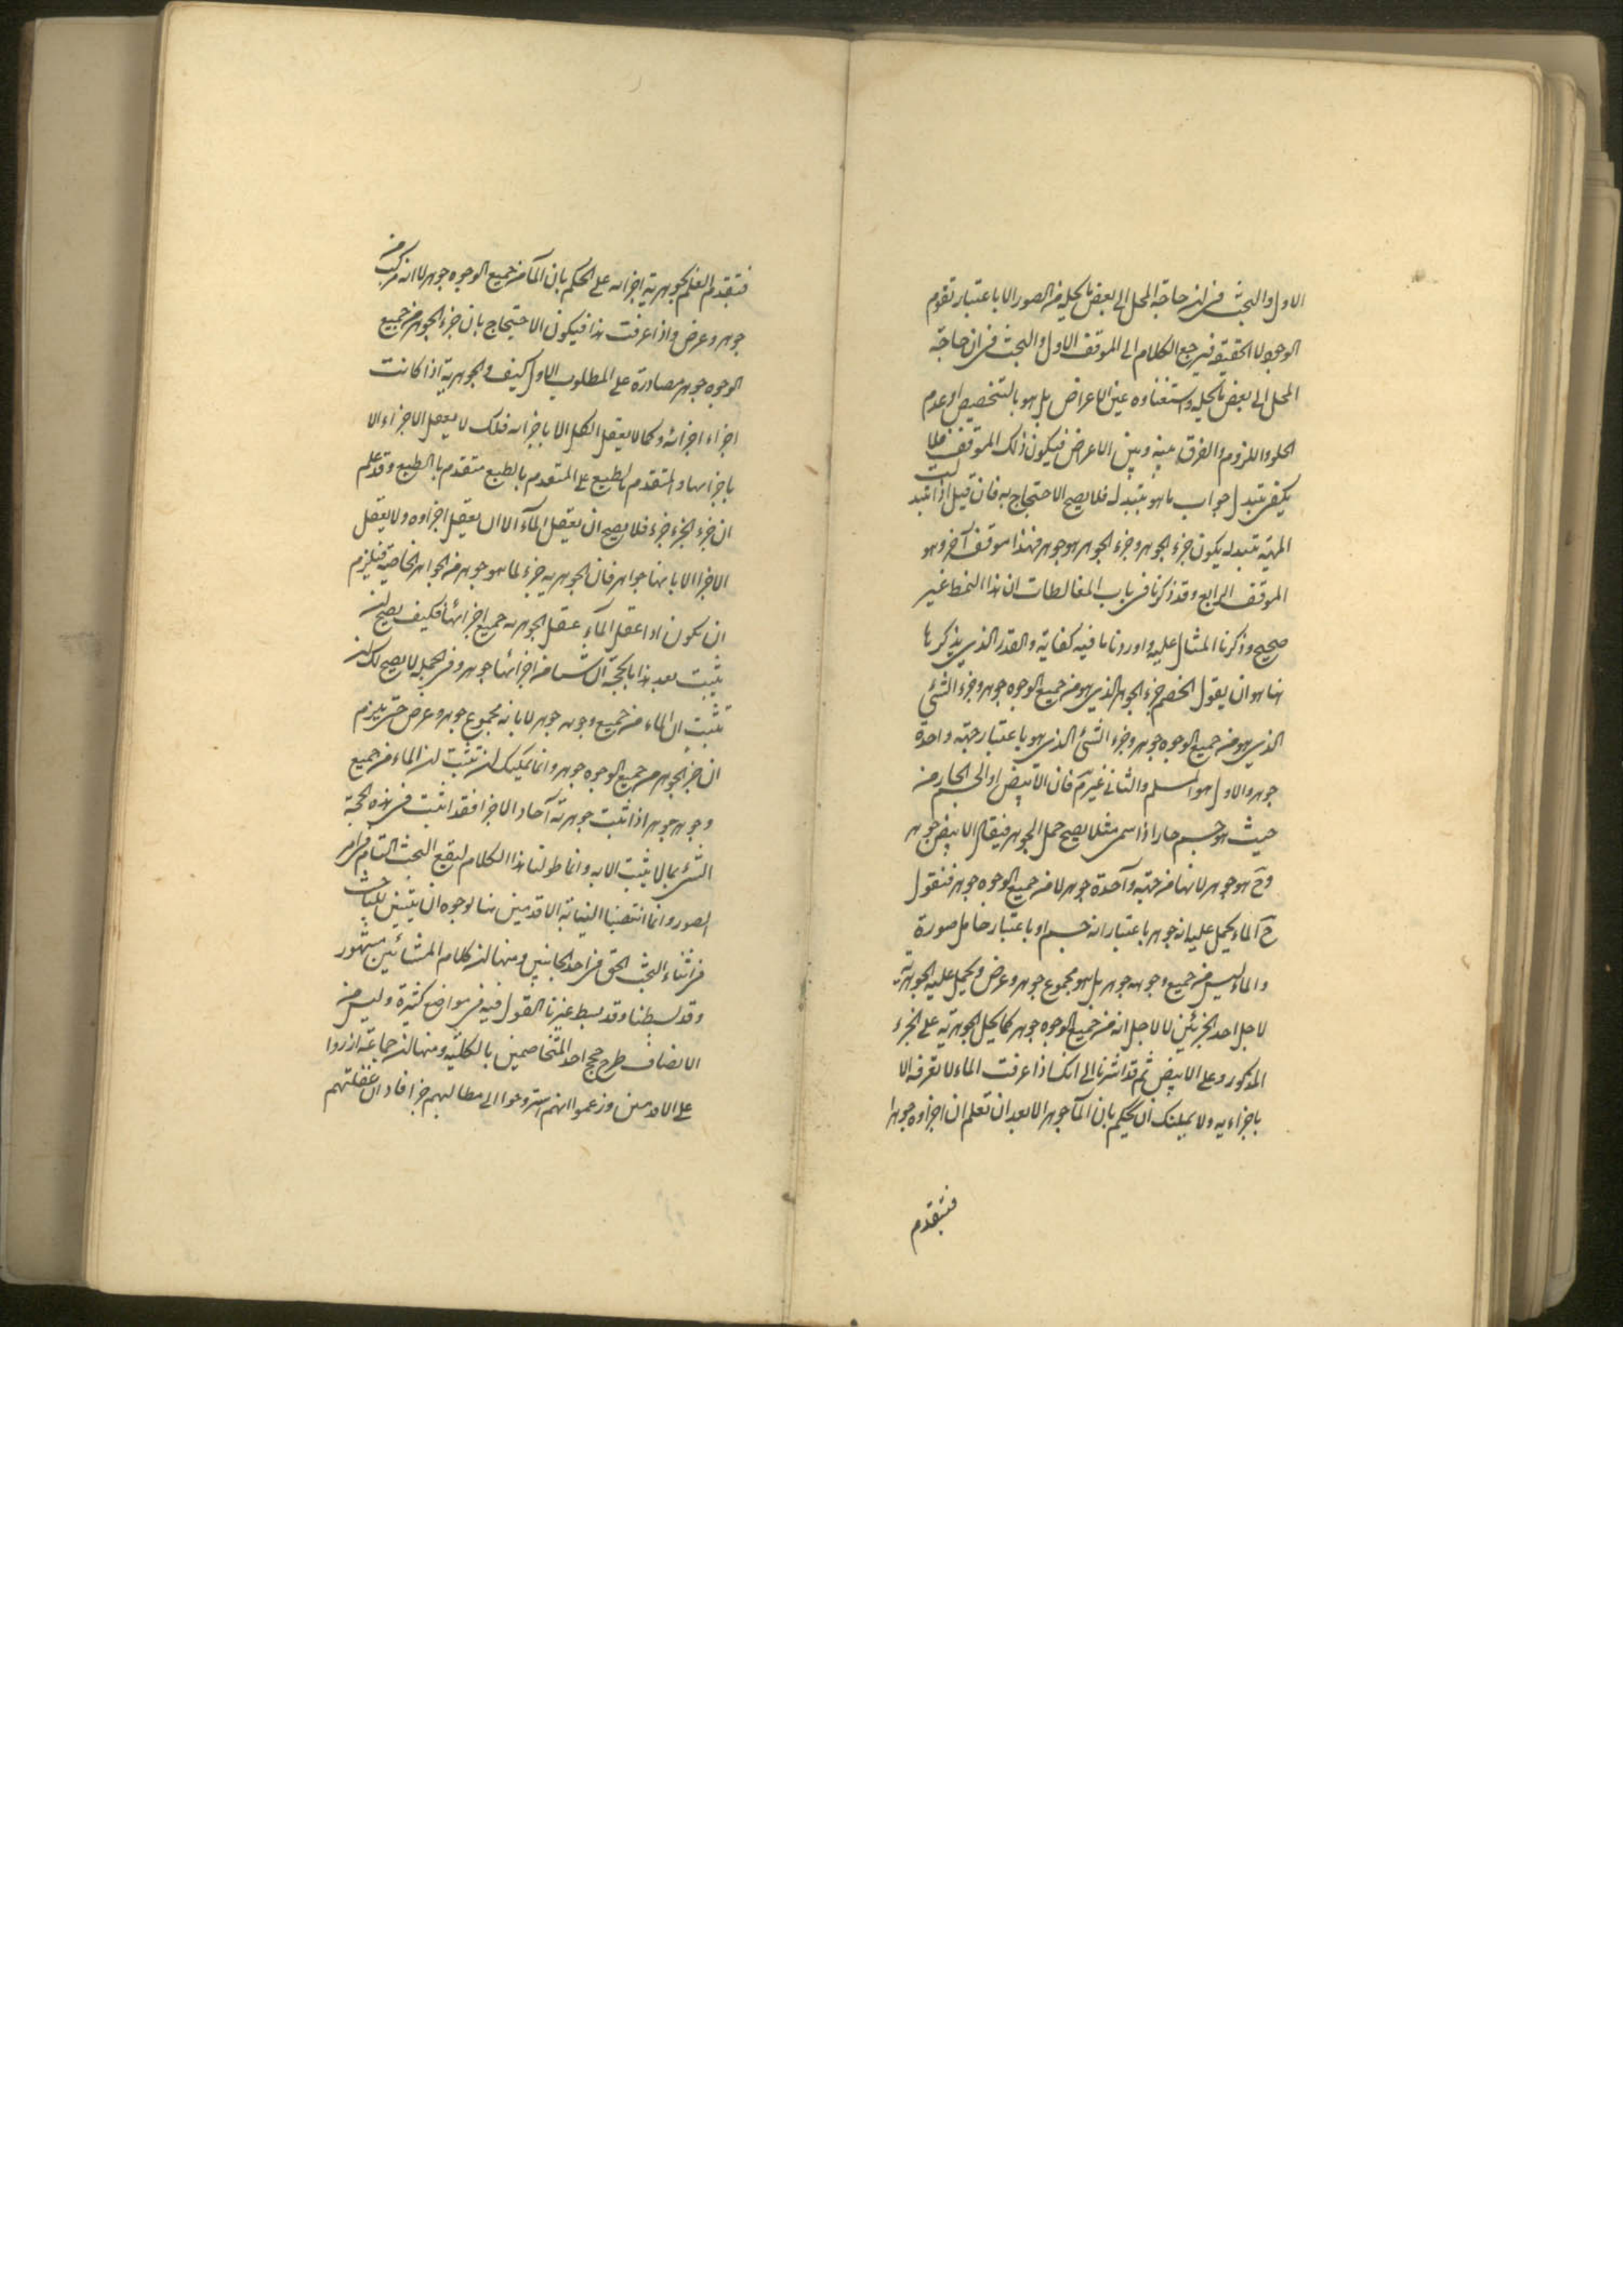 الاول والبحث فى ان حاجة المحل الى بعض ما يحله من الصور الا باعتبار تقوم
الوجود لا الحقيقة فيرجع الكلام الى الموقف الاول والبحث فى ان حاجة
المحل الى بعض ما يحله واستغناوه عن الاعراض بل هو بالتخصيص او عدم
الخلو واللزوم والفرق بينه وبين الاعراض فيكون ذلك الموقف فلما
يكفى بتبدل جواب ما هو بتبدله فلا يصح الاحتجاج به فان قيل اذا تبدلت
المهية بتبدله يكون جزء الجوهر وجزء الجوهر هو جوهر فهذا موقف آخر وهو
الموقف الرابع وقد ذكرنا فى باب المغالطات ان هذا النمط غير
صحيح وذكرنا المثال عليه واوردنا ما فيه كفاية والقدر الذى يذكر ها
هنا هو ان يقول الخصم جزء الجوهر الذى هو من جميع الوجوه جوهر وجزء الشئ
الذى هو من جميع الوجوه جوهر وجزء الشئ الذى هو باعتبار جهة واحدة
جوهر والاول هو المسلم والثانى غير تم فان الابيض او الجسم الحار من
حيث هو جسم حار اذا سمى مثلا يصح حمل الجوهر فيقال الابيض جوهر
وح هو جوهر لا نها من جهة واحدة جوهر لا من جميع الوجوه جوهر فنقول
ح الماء يحمل عليه انه جوهر باعتبار انه جسم او باعتبار حامل صورة
والماء ليس من جميع وجوهه جوهر بل هو مجموع جوهر وعرض ويحمل عليه الجوهرية
لاجل احد الجزئين لا لاجل انه من جميع الوجوه جوهر كما يحمل الجوهرية على الجزء
المذكور وعلى الابيض ثم قد اشرنا الى انك اذا عرفت الماء لا تعرفه الا
باجزاءيه ولا يمكنك ان تحكم بان الماء جوهر الا بعد ان تعلم ان اجزاوه جوهر
فتقدم
فتقدم العلم بجوهرية اجزائه على الحكم بان الماء من جميع الوجوه جوهر لا انه مركب من
جوهر وعرض واذا عرفت هذا فيكون الاحتجاج بان جزء الجوهر من جميع
الوجوه جوهر مصادرة على المطلوب الاول كيف والجوهرية اذا كانت
اجزاء اجزائه وكما لا يعقل الكل الا باجزائه فلك لا يعقل الاجزاء الا
باجزائها والمتقدم بالطبع على المتقدم بالطبع متقدم بالطبع وقد علم
ان جزء الجزء جزء فلا يصح ان يعقل الماء الا ان يعقل اجزاوه ولا يعقل
الاجزا الا بانها جواهر فان الجوهرية جزء لما هو جوهر من الجواهر الخاصة فيلزم
ان يكون اذا عقل الماء عقل الجوهرية جميع اجزائها فكيف يصح ان
يثبت بعد هذا بالحجة ان شيا من اجزائها جوهر وفى الجملة لا يصح لك ان
تثبت ان الماء من جميع وجوهه جوهر لا بانه مجموع جوهر وعرض حتى يلزم
ان جزء الجوهر من جميع الوجوه جوهر وانما يمكنك ان تثبت ان الماء من جميع
وجوهه جوهر اذا ثبت جوهرية آحاد الاجزا فقد اثبت فى هذه الحجة
الشئ بما لا يثبت الا به وانما طولنا هذا الكلام ليقع البحث التام فى امر
الصور وانما انتصبنا لنيابة الاقدمين هنا لوجوه ان يتبين للباحث
فى اثناء البحث الحق فى احد الجانبين ومنها ان كلام المشائين مشهور
وقد بسطنا وقد بسط غيرنا القول فيه فى مواضع كثيرة وليس من
الانصاف طرح حجج احد المتخاصمين بالكلية ومنها ان جماعة ازروا
على الاقدمين وزعموا انهم استروحوا الى مطالبهم جزافا دالة غفلتهم